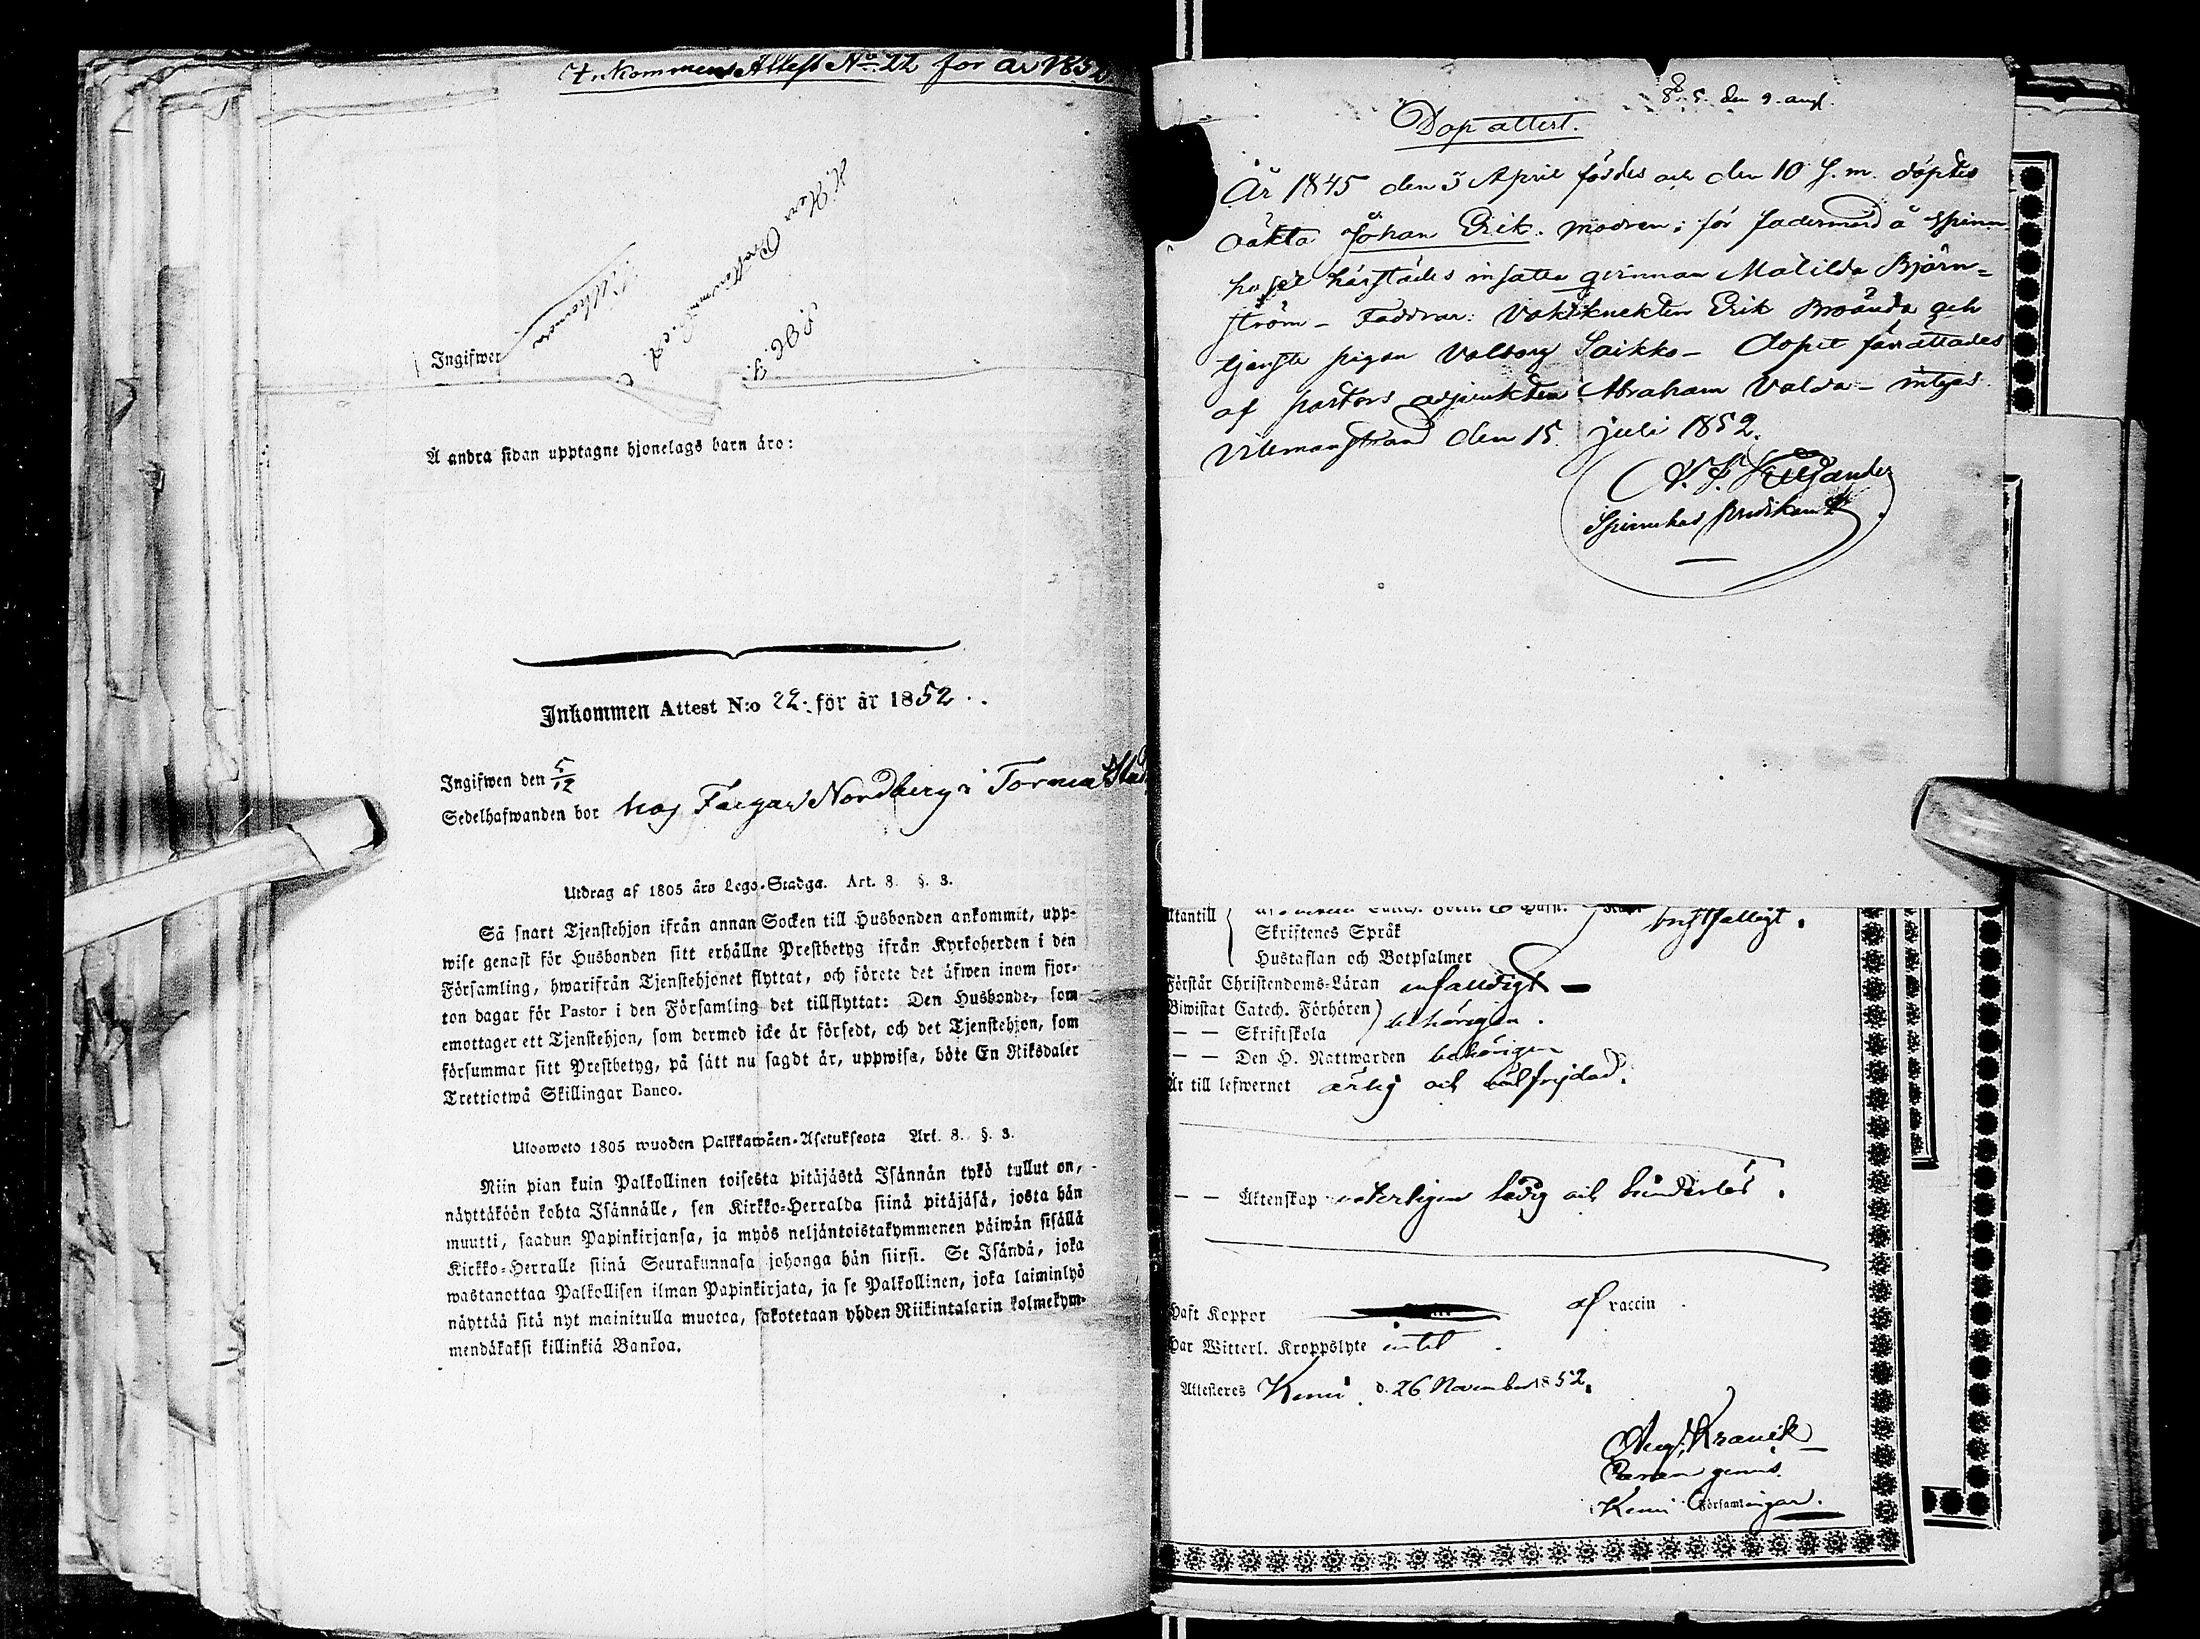 Inkommen Attest No 22 för år 1852
Ingifwer
Å andra sidan upptagne hjonelags barn äro:
Inkommen Attest N:o 22. för år 1852.
Ingifwen den 5/12
Sedelhafwanden bor hos Färgar Nordberg i Torneå Stad
Utdrag af 1805 års Lego-Stadga. Art. 8. §. 3.
Så snart Tjenstehjon ifrån annan Socken till Husbonden ankommit, upp-
wise genast för Husbonden sitt erhållne Prestbetyg ifrån Kyrkoherden i den
Församling, hwarifrån Tjenstehjonet flyttat, och förete det äfwen inom fjor-
ton dagar för Pastor i den Församling det tillflyttat: Den Husbonde, som
emottager ett Tjenstehjon, som dermed icke är försedt, och det Tjenstehjon, som
försummar sitt Prestbetyg, på sätt nu sagdt är, uppwisa, böte En Riksdaler
Trettiotwå Skillingar Banco.
Ulosweto 1805 wuoden Palkkawäen-Asetuksesta Art. 8. §. 3.
Niin pian kuin Palkollinen toisesta pitäjästä Isännän tykö tullut on,
näyttäköön kohta Isännälle, sen Kirkko-Herralda siinä pitäjäsä, josta hän
muutti, saadun Papinkirjansa, ja myös neljäntoistakymmenen päiwän sisällä
Kirkko-Herralle siinä Seurakunnasa johonga hän siirsi. Se Isändä, joka
wastanottaa Palkollisen ilman Papinkirjata, ja se Palkollinen, joka laiminlyö
näyttää sitä nyt mainitulla muotoa, sakotetaan yhden Riikintalarin kolmekym-
mendäkaksi killinkiä Bankoa.
den 9. aug.
Dop attest.
År 1845 den 3 April föddes och den 10 s. m. döptes
oäkta Johan Erik. Modren: för fadermord å Spinn-
huset härstädes insatta qvinnan Matilda Björn-
ström – Faddrar: Vaktknekten Erik och
tjenste pigan Valborg Saikko – Dopet förrättades
af pastors adjunkten Abraham Valda – intygas
Vilmanstrand den 15 juli 1852.
Spinnhus predikant
Utantill
Skriftenes Språk
Hustaflan och Botpsalmer
bristfälligt.
Förstår Christendoms-Läran enfaldigt –
Biwistat Catech. Förhören
– – Skriftskola
behörigen.
– – Den H. Nattwarden behörigen
Är till lefwernet ärlig och välfrejdad.
– – Äktenskap veterligen ledig och hinderlös.
Haft Koppor af vaccin
Har Witterl. Kroppslyte intet.
Attesteres Kemi d. 26 November 1852.
Aug. Kranck
Kemi Församlingar.